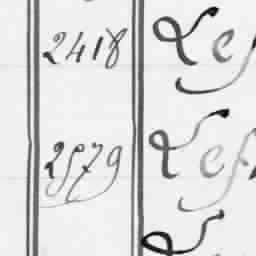 2418 Lef
2579 Lef